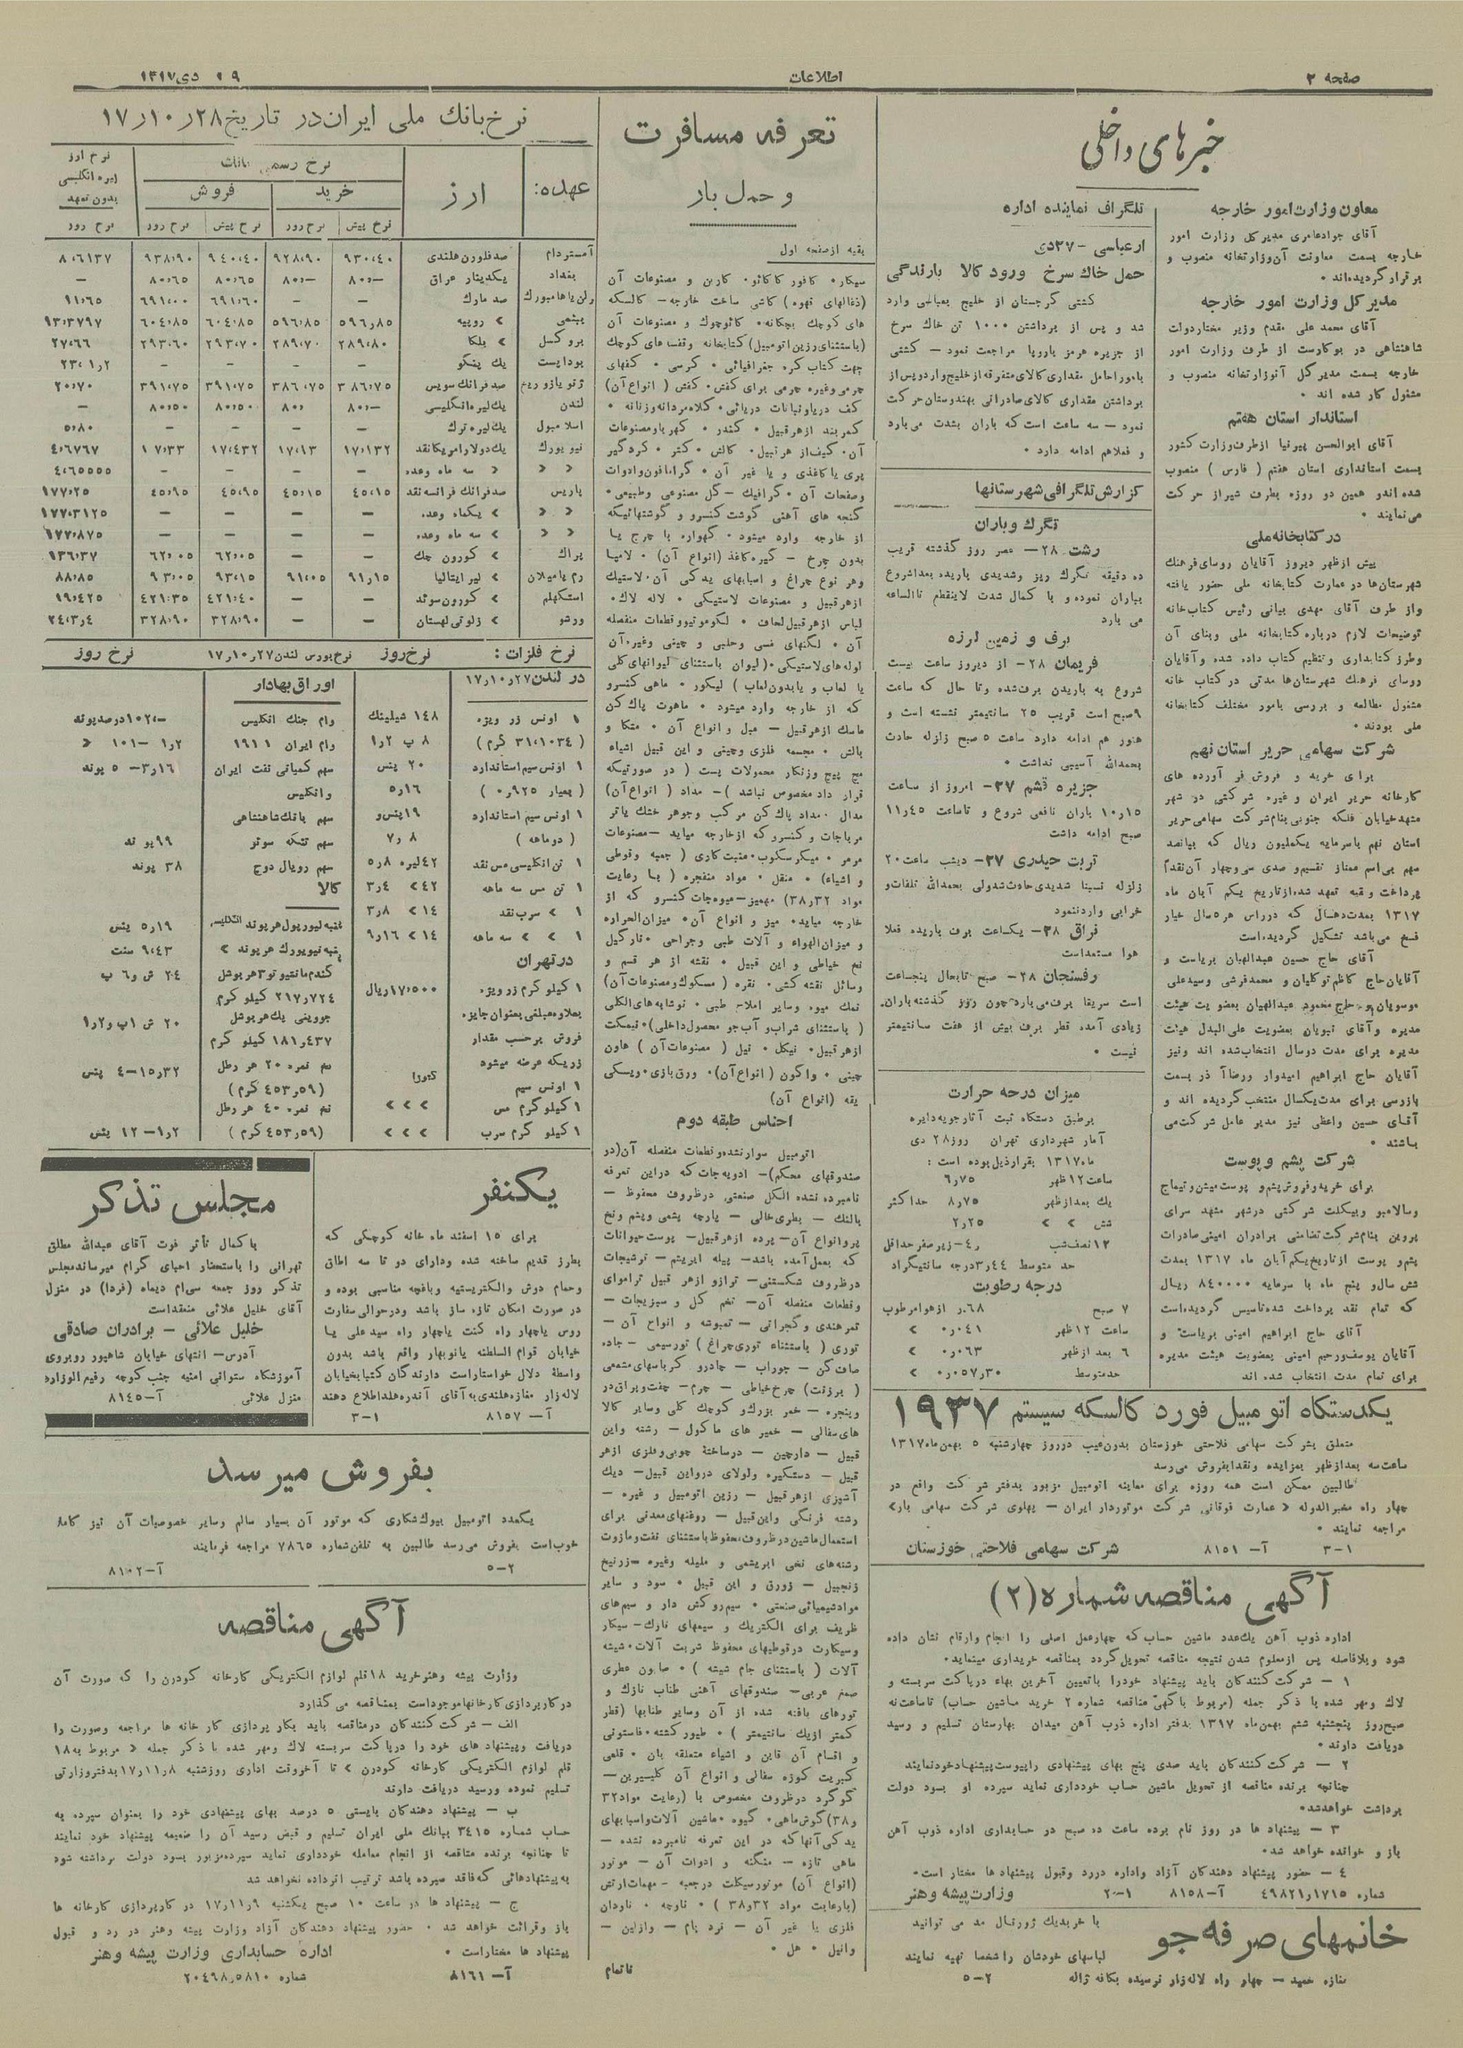 صفحه ۲
اطلاعات
۲۹ دی ۱۳۱۷
خبرهای داخلی
معاون وزارت امور خارجه
آقای جواد عامری مدیر کل وزارت امور
خارجه بسمت معاونت آن وزارتخانه منصوب و
برقرار گردیده‌اند.
مدیر کل وزارت امور خارجه
آقای محمد علی مقدم وزیر مختار دولت
شاهنشاهی در بوکارست از طرف وزارت امور
خارجه بسمت مدیر کل آنوزارتخانه منصوب و
مشغول کار شده اند
استاندار استان هفتم
آقای ابوالحسن پیرنیا از طرف وزارت کشور
بسمت استانداری استان هفتم (فارس) منصوب
شده‌اند و همین دو روزه بطرف شیراز حرکت
می‌نمایند
در کتابخانه ملی
پیش از ظهر دیروز آقایان روسای فرهنگ
شهرستان‌ها در عمارت کتابخانه ملی حضور یافته
و از طرف آقای مهدی بیانی رئیس کتاب خانه
توضیحات لازم درباره کتابخانه ملی و بنای آن
و طرز کتابداری و تنظیم کتاب داده شده و آقایان
روسای فرهنگ شهرستان‌ها مدتی در کتاب خانه
مشغول مطالعه و بررسی بامور مختلف کتابخانه
ملی بودند
شرکت سهامی حریر استان نهم
برای خرید و فروش فرآورده های
کارخانه حریر ایران و غیره شرکتی در شهر
مشهد خیابان فلکه جنوبی بنام شرکت سهامی حریر
استان نهم با سرمایه یکملیون ریال که بپانصد
سهم بی‌اسم ممتاز تقسیم و صدی سی و چهار آن نقداً
پرداخت و بقیه تعهد شده از تاریخ یکم آبان ماه
۱۳۱۷ بمدت دهسال که در راس هر ۵ سال خیار
فسخ می‌باشد تشکیل گردیده‌است
آقای حاج حسین عبدالهیان بریاست و
آقایان حاج کاظم توکلیان و محمد قرشی و سیدعلی
موسویان و حاج محمود عبدالهیان بعضویت هیئت
مدیره و آقای نبویان بعضویت علی‌البدل هیئت
مدیره برای مدت دو سال انتخاب شده اند و نیز
آقایان حاج ابراهیم امیدوار و رضا آذر بسمت
بازرسی برای مدت یکسال منتخب گردیده اند و
آقای حسین واعظی نیز مدیر عامل شرکت می
باشند
شرکت پشم و پوست
برای خرید و فروش پشم و پوست میش و تیماج
و سالامبور و بیکلت شرکتی در شهر مشهد سرای
پروین بنام شرکت تضامنی برادران امینی صادرات
پشم و پوست از تاریخ یکم آبان ماه ۱۳۱۷ بمدت
شش سال و پنج ماه با سرمایه ۸۴۰۰۰۰ ریال
که تمام نقد پرداخت شده تاسیس گردیده‌است
آقای حاج ابراهیم امینی بریاست و
آقایان یوسف و رحیم امینی بعضویت هیئت مدیره
برای تمام مدت انتخاب شده اند
تلگراف نماینده اداره
از عباسی - ۲۷ دی
حمل خاک سرخ ورود کالا بارندگی
کشتی گرجستان از خلیج بعباسی وارد
شد و پس از برداشتن ۱۰۰۰ تن خاک سرخ
از جزیره هرمز باروپا مراجعت نمود - کشتی
بامورا حامل مقداری کالای متفرقه از خلیج وارد و پس از
برداشتن مقداری کالای صادراتی بهندوستان حرکت
نمود - سه ساعت است که باران بشدت می‌بارد
و فعلا هم ادامه دارد
گزارش تلگرافی شهرستانها
تگرگ و باران
رشت ۲۸- عصر روز گذشته قریب
ده دقیقه تگرگ ریز و شدیدی باریده بعد شروع
بباران نموده و با کمال شدت لاینقطع تا الساعه
می بارد
برف و زمین لرزه
فریمان ۲۸- از دیروز ساعت بیست
شروع به باریدن برف شده و تا حال که ساعت
۹ صبح است قریب ۲۵ سانتیمتر نشسته است و
هنوز هم ادامه دارد ساعت ۵ صبح زلزله حادث
بحمدالله آسیبی نداشت
جزیره قشم ۲۷- امروز از ساعت
۱۰ر۱۵ باران نافعی شروع و تا ساعت ۱۱ر۴۵
صبح ادامه داشت
تربت حیدری ۲۷- دیشب ساعت ۲۰
زلزله نسبتا شدیدی حادث شد ولی بحمدالله تلفات و
خرابی وارد ننمود
فراق ۲۸- یکساعت برف باریده فعلا
هوا مستعد است
رفسنجان ۲۸- صبح تا بحال پنجساعت
است متفرقا برف می‌بارد چون روز گذشته باران
زیادی آمده قطر برف بیش از هفت سانتیمتر
نیست
میزان درجه حرارت
برطبق دستگاه ثبت آثار جویه دایره
آمار شهرداری تهران روز ۲۸ دی
ماه ۱۳۱۷ بقرار ذیل بوده است :
ساعت ۱۲ ظهر ۶ر۷۵
یک بعد از ظهر ۸ر۷۵ حداکثر
شش > > ۲ر۲۵
۱۲ نصف شب ر۴- زیر صفر حداقل
حد متوسط ۳ر۴۴ درجه سانتیگراد
درجه رطوبت
۷ صبح ر۶۸ از هوا مرطوب
ساعت ۱۲ ظهر ۰ر۰۴۱ >
۶ بعد از ظهر ۰ر۰۶۳ >
حد متوسط ۰ر۰۵۷ر۳۰ >
یکدستگاه اتومبیل فورد کالسکه سیستم ۱۹۳۷
متعلق بشرکت سهامی فلاحتی خوزستان بدون عیب در روز چهارشنبه ۵ بهمن ماه ۱۳۱۷
ساعت سه بعد از ظهر بمزایده و نقدا بفروش می‌رسد
طالبین ممکن است همه روزه برای معاینه اتومبیل مزبور بدفتر شرکت واقع در
چهار راه مخبرالدوله < عمارت فوقانی شرکت موتوردار ایران - پهلوی شرکت سهامی بار>
مراجعه نمایند
۳-۱ آ- ۸۱۵۱ شرکت سهامی فلاحتی خوزستان
آگهی مناقصه شماره (۲)
اداره ذوب آهن یک عدد ماشین حساب که چهار عمل اصلی را انجام و ارقام نشان داده
شود و بلافاصله پس از معلوم شدن نتیجه مناقصه تحویل گردد بمناقصه خریداری مینماید.
۱ - شرکت کنندگان باید پیشنهاد خود را با تعیین آخرین بهاء در پاکت سربسته و
لاک و مهر شده با ذکر جمله (مربوط باگهی مناقصه شماره ۲ خرید ماشین حساب) تا ساعت نه
صبح روز پنجشنبه ششم بهمن ماه ۱۳۱۷ بدفتر اداره ذوب آهن میدان بهارستان تسلیم و رسید
دریافت دارند
۲ - شرکت کنندگان باید صدی پنج بهای پیشنهادی را پیوست پیشنهاد خود نمایند
چنانچه برنده مناقصه از تحویل ماشین حساب خودداری نماید سپرده او بسود دولت
برداشت خواهد شد
۳ - پیشنهاد ها در روز نام برده ساعت ده صبح در حسابداری اداره ذوب آهن
باز و خوانده خواهد شد
۴ - حضور پیشنهاد دهندگان آزاد و اداره در رد و قبول پیشنهاد ها مختار است
شماره ۴۹۸۲۱ر۱۷۱۵ آ- ۸۱۵۸ ۲-۱ وزارت پیشه و هنر
خانمهای صرفه جو
با خرید یک ژورنال مد می توانید
لباسهای خودشان را شخصا تهیه نمایند
مغازه حمید - چهار راه لاله زار نرسیده بکافه ژاله ۵-۲
تعرفه مسافرت
و حمل بار
بقیه از صفحه اول
سیکار. کافور کاکائو. کاربن و مصنوعات آن
(ذغالهای قهوه) کاشی ساخت خارجه- کالسکه
های کوچک بچگانه. کائوچوک و مصنوعات آن
(باستثنای رزین اتومبیل) کتابخانه و قفسه های کوچک
جهت کتاب کره جغرافیائی. کرسی. کفهای
چرمی و غیره چرمی برای کفش. کفش (انواع آن)
کف دریا و نباتات دریائی. کلاه مردانه و زنانه.
کمربند از هر قبیل. کندر. کهربا و مصنوعات
آن. کیف از هر قبیل. کالش. کتر. کردگیر
پری یا کاغذی و یا غیر آن. گرامافون و ادوات
و صفحات آن. گرافیک - گل مصنوعی و طبیعی.
گنجه های آهنی گوشت کنسرو و گوشتهائیکه
از خارجه وارد میشود. گهواره با چرخ یا
بدون چرخ - گیره کاغذ (انواع آن). لامپا
و هر نوع چراغ و اسبابهای یدکی آن. لاستیک
از هر قبیل و مصنوعات لاستیکی. لاله لاک.
لباس از هر قبیل لحاف. لکوموتیو و قطعات منفصله
آن. لگنهای مسی و حلبی و چینی و غیره. آن
لوله های لاستیکی. (لیوان باستثنای لیوانهای گلی
با لعاب و یا بدون لعاب) لیکور. ماهی کنسرو
که از خارجه وارد میشود. ماهوت پاک کن
ماسک از هر قبیل - مبل و انواع آن. متکا و
بالش. مجسمه فلزی و چینی و این قبیل اشیاء
مچ پیچ و زنکار محمولات پست (در صورتیکه
قرار داد مخصوص نباشد) - مداد (انواع آن)
مدال. مداد پاک کن مرکب و جوهر خشک یا تر
مرباجات و کنسرو که از خارجه میاید- مصنوعات
مرمر. میکرسکوب. منبت کاری (جعبه و قوطی
و اشیاء). منقل. مواد منفجره (با رعایت
مواد ۳۲ و ۳۸) مهمیز- میوه جات کنسرو که از
خارجه میاید. میز و انواع آن. میزان الحراره
و میزان الهواء و آلات طبی و جراحی. نارگیل
نخ خیاطی و این قبیل. نقشه از هر قسم و
وسائل نقشه کشی. نقره (مسکوک و مصنوعات آن)
نمک میوه و سایر املاح طبی. نوشابه های الکلی
(باستثنای شراب و آبجو محصول داخلی). نیمکت
از هر قبیل. نیکل. نیل (مصنوعات آن) هاون
چینی. واگون (انواع آن). ورق بازی. ویسکی
یقه (انواع آن)
اجناس طبقه دوم
اتومبیل سوار نشده و قطعات منفصله آن (در
صندوقهای محکم)- ادویه جات که در این تعرفه
نامبرده نشده الکل صنعتی در ظروف محفوظ -
بالنک - بطری خالی - پارچه پشمی و پشم و نخ
پر و انواع آن- پرده از هر قبیل- پوست حیوانات
که بعمل آمده باشد- پیله ابریشم- ترشیجات
در ظروف شکستنی- ترازو از هر قبیل تراموای
و قطعات منفصله آن- تخم گل و سبزیجات-
تمر هندی و گجراتی - تنبوشه و انواع آن -
توری (باستثناء توری چراغ) تورسیمی - جاده
صاف کن - جوراب - چادر و کرباسهای مشمعی
(برزنت) چرخ خیاطی - چرم - چفت و یراق در
و پنجره - خمر بزرگ و کوچک گلی و سایر کالا
های سفالی - خمیر های ماکول - رشته و این
قبیل - دارچین - درساختهٔ چوبی و فلزی از هر
قبیل - دستگیره و لولای در و این قبیل- دیگ
آشپزی از هر قبیل - رزین اتومبیل و غیره -
رشته فرنگی و این قبیل - روغنهای معدنی برای
استعمال ماشین در ظروف محفوظ باستثنای نفت و مازوت
رشته‌های نخی ابریشمی و ملیله و غیره -زرنیخ
زنجبیل - زورق و این قبیل. سود و سایر
مواد شیمیائی صنعتی. سیم روکش دار و سیم های
ظریف برای الکتریک و سیمهای نازک- سیگار
و سیگارت در قوطیهای محفوظ شربت آلات. شیشه
آلات (باستثنای جام شیشه). صابون عطری
صمغ عربی- صندوقهای آهنی طناب نازک و
تورهای بافته شده از آن و سایر طنابها (قطر
کمتر از یک سانتیمتر). طیور کشته. فاستونی
و اقسام آن قاین و اشیاء متعلقه بان. قلمی
کبریت کوزه سفالی و انواع آن گلیسیرین-
گوگرد در ظروف مخصوص با (رعایت مواد ۳۲
و ۳۸) گوش ماهی. گیوه. ماشین آلات و اسبابهای
یدکی آنها که در این تعرفه نامبرده نشده -
ماهی تازه - منگنه و ادوات آن - موتور
(انواع آن) موتورسیکلت در جعبه - مهمات ارتش
(با رعایت مواد ۳۲ و ۳۸). نارچه. ناودان
فلزی یا غیر آن - نرد بام - وازلین -
وانیل. هل.
ناتمام
نرخ بانک ملی ایران در تاریخ ۲۸ر۱۰ر۱۷
عهده: ارز نرخ رسمی بانک نرخ ارز لیره انگلیسی بدون تعهد
خرید فروش
نرخ پیش نرخ روز نرخ پیش نرخ روز نرخ روز
آمستردام صد فلورن هلندی ۹۳۰،۴۰ ۹۲۸،۹۰ ۹۴۰،۴۰ ۹۳۸،۹۰ ۸،۶۱۳۷
بغداد یکدینار عراق ۸۰،- ۸۰،- ۸۰،۶۵ ۸۰،۶۵ -
برلن یا هامبورگ صد مارک - - ۶۹۱،۶۰ ۶۹۱،۰۰ ۱۱،۶۵
بمبئی > روپیه ۵۹۶،۸۵ ۵۹۶،۸۵ ۶۰۴،۸۵ ۶۰۴،۸۵ ۹۳،۳۷۹۷
بروکسل > بلگا ۲۸۹،۸۰ ۲۸۹،۷۰ ۲۹۳،۷۰ ۲۹۳،۶۰ ۲۷،۶۶
بوداپست یک پنگو - - - - ۲۳،۱ر۲
ژنو یا زوریخ صد فرانک سویس ۳۸۶،۷۵ ۳۸۶،۷۵ ۳۹۱،۷۵ ۳۹۱،۷۵ ۲۰،۷۰
لندن یک لیره انگلیسی ۸۰،- ۸۰،- ۸۰،۵۰ ۸۰،۵۰ -
اسلامبول یک لیره ترک - - - - ۵،۸۰
نیویورک یک دولار امریکا نقد ۱۷،۱۳۲ ۱۷،۱۳ ۱۷،۴۳۲ ۱۷،۳۳ ۴،۶۷۶۷
> > > سه ماه وعده - - - - ۴،۶۵۵۵۵
پاریس صد فرانک فرانسه نقد ۴۵،۱۵ ۴۵،۱۵ ۴۵،۹۵ ۴۵،۹۵ ۱۷۷،۲۵
> > > یکماه وعده - - - - ۱۷۷،۳۱۲۵
> > > سه ماه وعده - - - - ۱۷۷،۸۷۵
پراگ > کورون چک - - ۶۲،۰۵ ۶۲،۰۵ ۱۳۶،۳۷
رم یا میلان > لیر ایتالیا ۹۱،۱۵ ۹۱،۰۵ ۹۳،۱۵ ۹۳،۰۵ ۸۸،۸۵
استکهلم > کورون سوئد - - ۴۲۱،۴۰ ۴۲۱،۳۵ ۱۹،۴۲۵
ورشو > زلوتی لهستان - - ۳۲۸،۹۰ ۳۲۸،۹۰ ۲۴،۳ر۴
نرخ فلزات : نرخ روز
در لندن ۲۷ر۱۰ر۱۷
۱ اونس زر ویژه ۱۴۸ شیلینک
(۳۱،۱۰۳۴ گرم) ۸ پ ۱ر۲
۱ اونس سیم استاندارد ۲۰ پنس
(بعیار ۹۲۵ر۰) ۵ر۱۶
۱ اونس سیم استاندارد ۱۹ پنس و
(دو ماهه) ۷ر۸
۱ تن انگلیسی مس نقد ۴۲ لیره ۵ر۸
۱ تن مس سه ماهه ۴۲> ۳ر۴
۱ > سرب نقد ۱۴> ۳ر۸
۱ > > سه ماهه ۱۴> ۹ر۱۶
در تهران
۱ کیلو گرم زر ویژه ۱۷،۵۰۰ ریال
بعلاوه مبلغی بعنوان جایزه
فروش برحسب مقدار
زریکه عرضه میشود
۱ اونس سیم
۱ کیلو گرم مس > > >
۱ کیلو گرم سرب > > >
نرخ بورس لندن ۲۷ر۱۰ر۱۷ نرخ روز
اوراق بهادار
وام جنگ انگلیس ۱۰۲،- درصد پوند
وام ایران ۱۹۱۱ ۱ر۲ -۱۰۱ >
سهم کمپانی نفت ایران و انگلیس ۳ر۱۶- ۵ پوند
سهم بانک شاهنشاهی
سهم تنگه سوئز ۹۹ پوند
سهم رویال دوچ ۳۸ پوند
کالا
پنبه لیورپول هر پوند انگلیسی ۵ر۱۹ پنس
پنبه نیویورک هر پوند > ۹،۴۳ سنت
گندم مانیتوبا ۳ هر بوشل ۲۴ ش و ۶ پ
۲۱۷ر۷۲۴ کیلو گرم
جو وینی پک هر بوشل ۲۰ ش ۱ پ و ۱ر۲
۱۸۱ر۴۳۷ کیلو گرم
نخ نمره ۲۰ هر رطل ۱۵ر۳۲-۴ پنس
(۴۵۳ر۵۹ گرم)
نخ نمره ۴۰ هر رطل
(۴۵۳ر۵۹ گرم) ۱ر۲-۱۲ پنس
یکنفر
برای ۱۵ اسفند ماه خانه کوچکی که
بطرز قدیم ساخته شده و دارای دو تا سه اطاق
و حمام دوش و الکتریسته و باغچه مناسبی بوده و
در صورت امکان تازه ساز باشد و در حوالی سفارت
روس یا چهار راه کنت یا چهار راه سید علی یا
خیابان قوام السلطنه یا نوبهار واقع باشد بدون
واسطهٔ دلال خواستار است دارندگان کتبا بخیابان
لاله زار مغازه هلندی به آقای آندره هلد اطلاع دهند
آ- ۸۱۵۷ ۳-۱
مجلس تذکر
با کمال تأثر فوت آقای عبدالله مطلق
تهرانی را باستحضار احبای گرام میرساند مجلس
تذکر روز جمعه سی‌ام دیماه (فردا) در منزل
آقای خلیل علائی منعقد است
خلیل علائی - برادران صادقی
آدرس- انتهای خیابان شاهپور روبروی
آموزشگاه ستوانی امنیه جنب کوچه رفیع الوزاره
منزل علائی آ-۸۱۴۵
بفروش میرسد
یکعدد اتومبیل بیوک شکاری که موتور آن بسیار سالم و سایر خصوصیات آن نیز کاملا
خوب است بفروش می‌رسد طالبین به تلفن شماره ۷۸۶۵ مراجعه فرمایند
۵-۲ آ-۸۱۰۲
آگهی مناقصه
وزارت پیشه و هنر خرید ۱۸ قلم لوازم الکتریکی کارخانه کودرن را که صورت آن
در کارپردازی کارخانها موجود است بمناقصه می گذارد
الف - شرکت کنندگان در مناقصه باید بکار پردازی کار خانه ها مراجعه و صورت را
دریافت و پیشنهاد های خود را در پاکت سربسته لاک و مهر شده با ذکر جمله < مربوط به ۱۸
قلم لوازم الکتریکی کارخانه کودرن > تا آخر وقت اداری روز شنبه ۱۷ر۱۱ر۸ بدفتر وزارتی
تسلیم نموده و رسید دریافت دارند
ب - پیشنهاد دهندگان بایستی ۵ درصد بهای پیشنهادی خود را بعنوان سپرده به
حساب شماره ۳۴۱۵ ببانک ملی ایران تسلیم و قبض رسید آن را ضمیمه پیشنهاد خود نمایند
تا چنانچه برنده مناقصه از انجام معامله خودداری نماید سپرده مزبور بسود دولت برداشته شود
به پیشنهادهائی که فاقد سپرده باشد ترتیب اثر داده نخواهد شد
ج - پیشنهاد ها در ساعت ۱۰ صبح یکشنبه ۱۷ر۱۱ر۹ در کارپردازی کارخانه ها
باز و قرائت خواهد شد. حضور پیشنهاد دهندگان آزاد وزارت پیشه و هنر در رد و قبول
پیشنهاد ها مختار است
اداره حسابداری وزارت پیشه و هنر
آ- ۸۱۶۱ شماره ۲۰۴۶۸ر۵۸۱۰